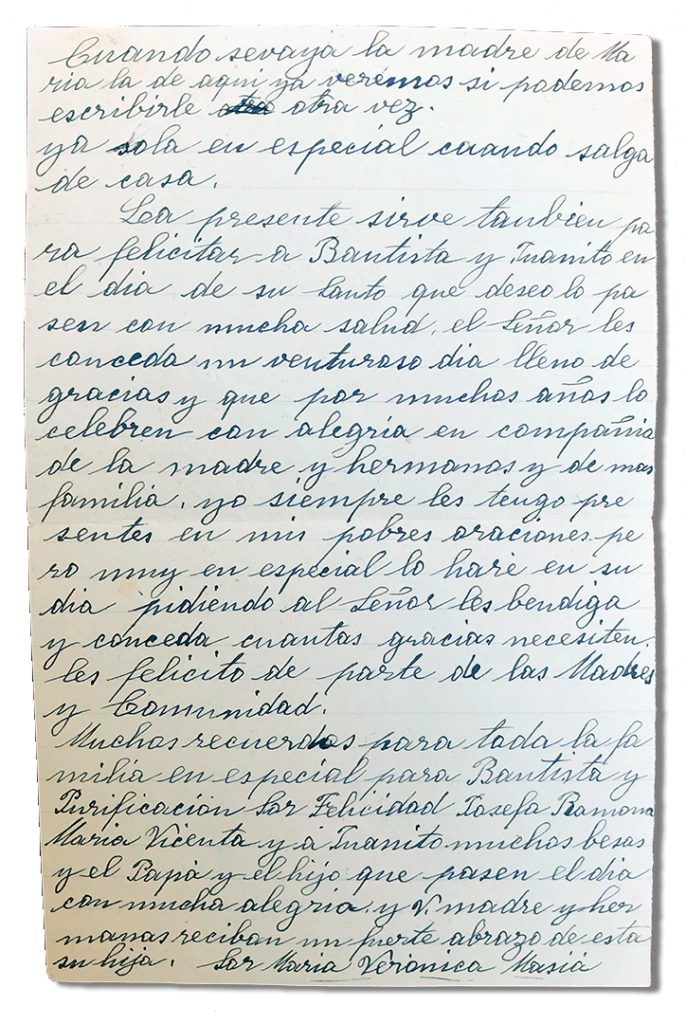 Cuando sevaya la madre de Ma
ria la de aqui ya verémos si podemos
escribirle otra vez.
ya sola en especial cuando salga
de casa.
La presente sirve tanbien pa
ra felicitar a Bautista y Juanito en
el dia de su Santo que deseo lo pa
sen con mucha salud, el Señor les
conceda un venturoso dia lleno de
gracias y que por muchos años lo
celebren con alegria en compañia
de la madre y hermanas y de mas
familia, yo siempre les tengo pre
sentes en mis pobres oraciones pe
ro muy en especial lo haré en su
dia pidiendo al Señor les bendiga
y conceda cuantas gracias necesiten.
les felicito de parte de las Madres
y Comunidad.
Muchos recuerdos para toda la fa
milia en especial para Bautista y
Purificación Sor Felicidad Josefa Ramona
Maria Vicenta y á Juanito muchos besos
y el Papá y el hijo que pasen el dia
con mucha alegria y V. madre y her
manas reciban un fuerte abrazo de esta
su hija. Sor Maria Verónica Masiá